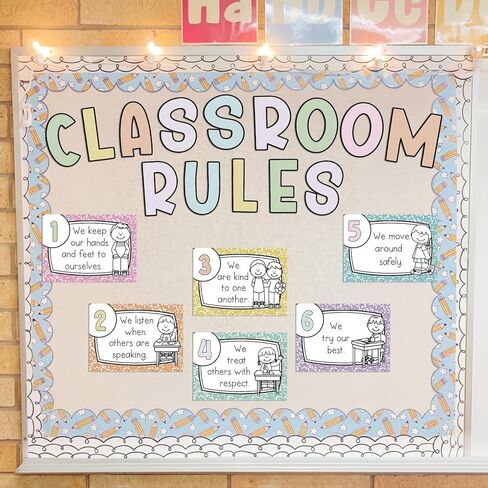 Ha
Cc
CLASSROOM
RULES
1
We keep
our hands
and feet to
ourselves.
2
We listen
when
others are
speaking.
3
We
are kind
to one
another.
4
We
treat
others with
respect.
5
We move
around
safely.
6
We
try our
best.